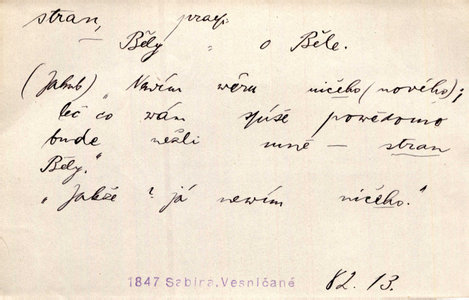 stran, praep.
Běly „ o Běle.
(Jakub) „Nevím věru ničeho (nového);
leč co vám spíše povědomo
bude nežli mně – stran
Běly."
„Jakže? já nevím ničeho."
1847 Sabina. Vesničané 82. 13.